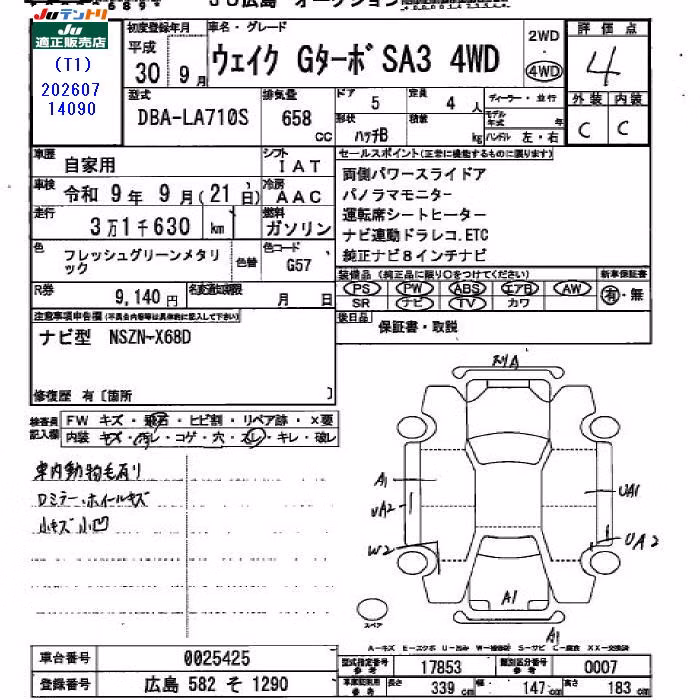 JU広島 オークション
JUテントリ
JU適正販売店
(T1)
202607
14090
初度登録年月
平成
30 9月
車名・グレード
ウェイク Gターボ SA3 4WD
2WD
・
4WD
評価点
4
外装 内装
C C
型式
DBA-LA710S
排気量
658 CC
ドア 5
定員 4人
形状 ハッチB
積載 kg
ディーラー・並行
モデル年式 年
ハンドル 左・右
車歴 自家用
シフト IAT
車検 令和 9年 9月(21日)
冷房 AAC
走行 3万1千630 km
燃料 ガソリン
色 フレッシュグリーンメタリック
色替
色コード G57
R券 9,140円
名変通知期限 月 日
セールスポイント(正常に機能するものに限ります)
両側パワースライドア
パノラマモニター
運転席シートヒーター
ナビ連動ドラレコ.ETC
純正ナビ8インチナビ
装備品 (純正品に限り○をつけてください)
新車保証書
PS PW ABS エアB AW
SR ナビ TV カワ
有・無
後日品
保証書・取説
注意事項申告欄(不具合内容等は具体的に記入して下さい)
ナビ型 NSZN-X68D
修復歴 有〔箇所 〕
検査員記入欄
FW キズ・飛石・ヒビ割・リペア跡・X要
内装 キズ・汚レ・コゲ・穴・スレ・キレ・破レ
車内動物毛有り
Dミラー・ホイールキズ
小キズ 小凹
スリA
A1
UA2
W2
UA1
UA2
A1
A1
スペア
A-キズ E-エクボ U-凹み W-補修跡 S-サビ C-腐食 XX-交換済
車台番号 0025425
登録番号 広島 582 そ 1290
型式指定番号 参考 17853
類別区分番号 参考 0007
車庫証明用 参考
長さ 339 cm
幅 147 cm
高さ 183 cm